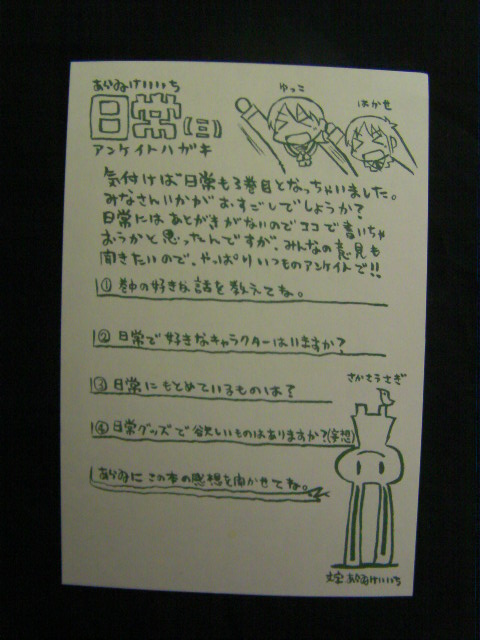 あらゐけいいち
日常(三)
アンケイトハガキ
ゆっこ
はかせ
気付けば日常も3巻目となっちゃいました。
みなさんいかがおすごしでしょうか?
日常にはあとがきがないのでココで書いちゃ
おうかと思ったんですが、みんなの意見も
聞きたいので、やっぱりいつものアンケイトで!!
①巻中の好きな話を教えてね。
②日常で好きなキャラクターはいますか?
③日常にもとめているものは?
④日常グッズで欲しいものはありますか?(妄想)
あらゐにこの本の感想を聞かせてね。
さかもうさぎ
文字 あらゐけいいち